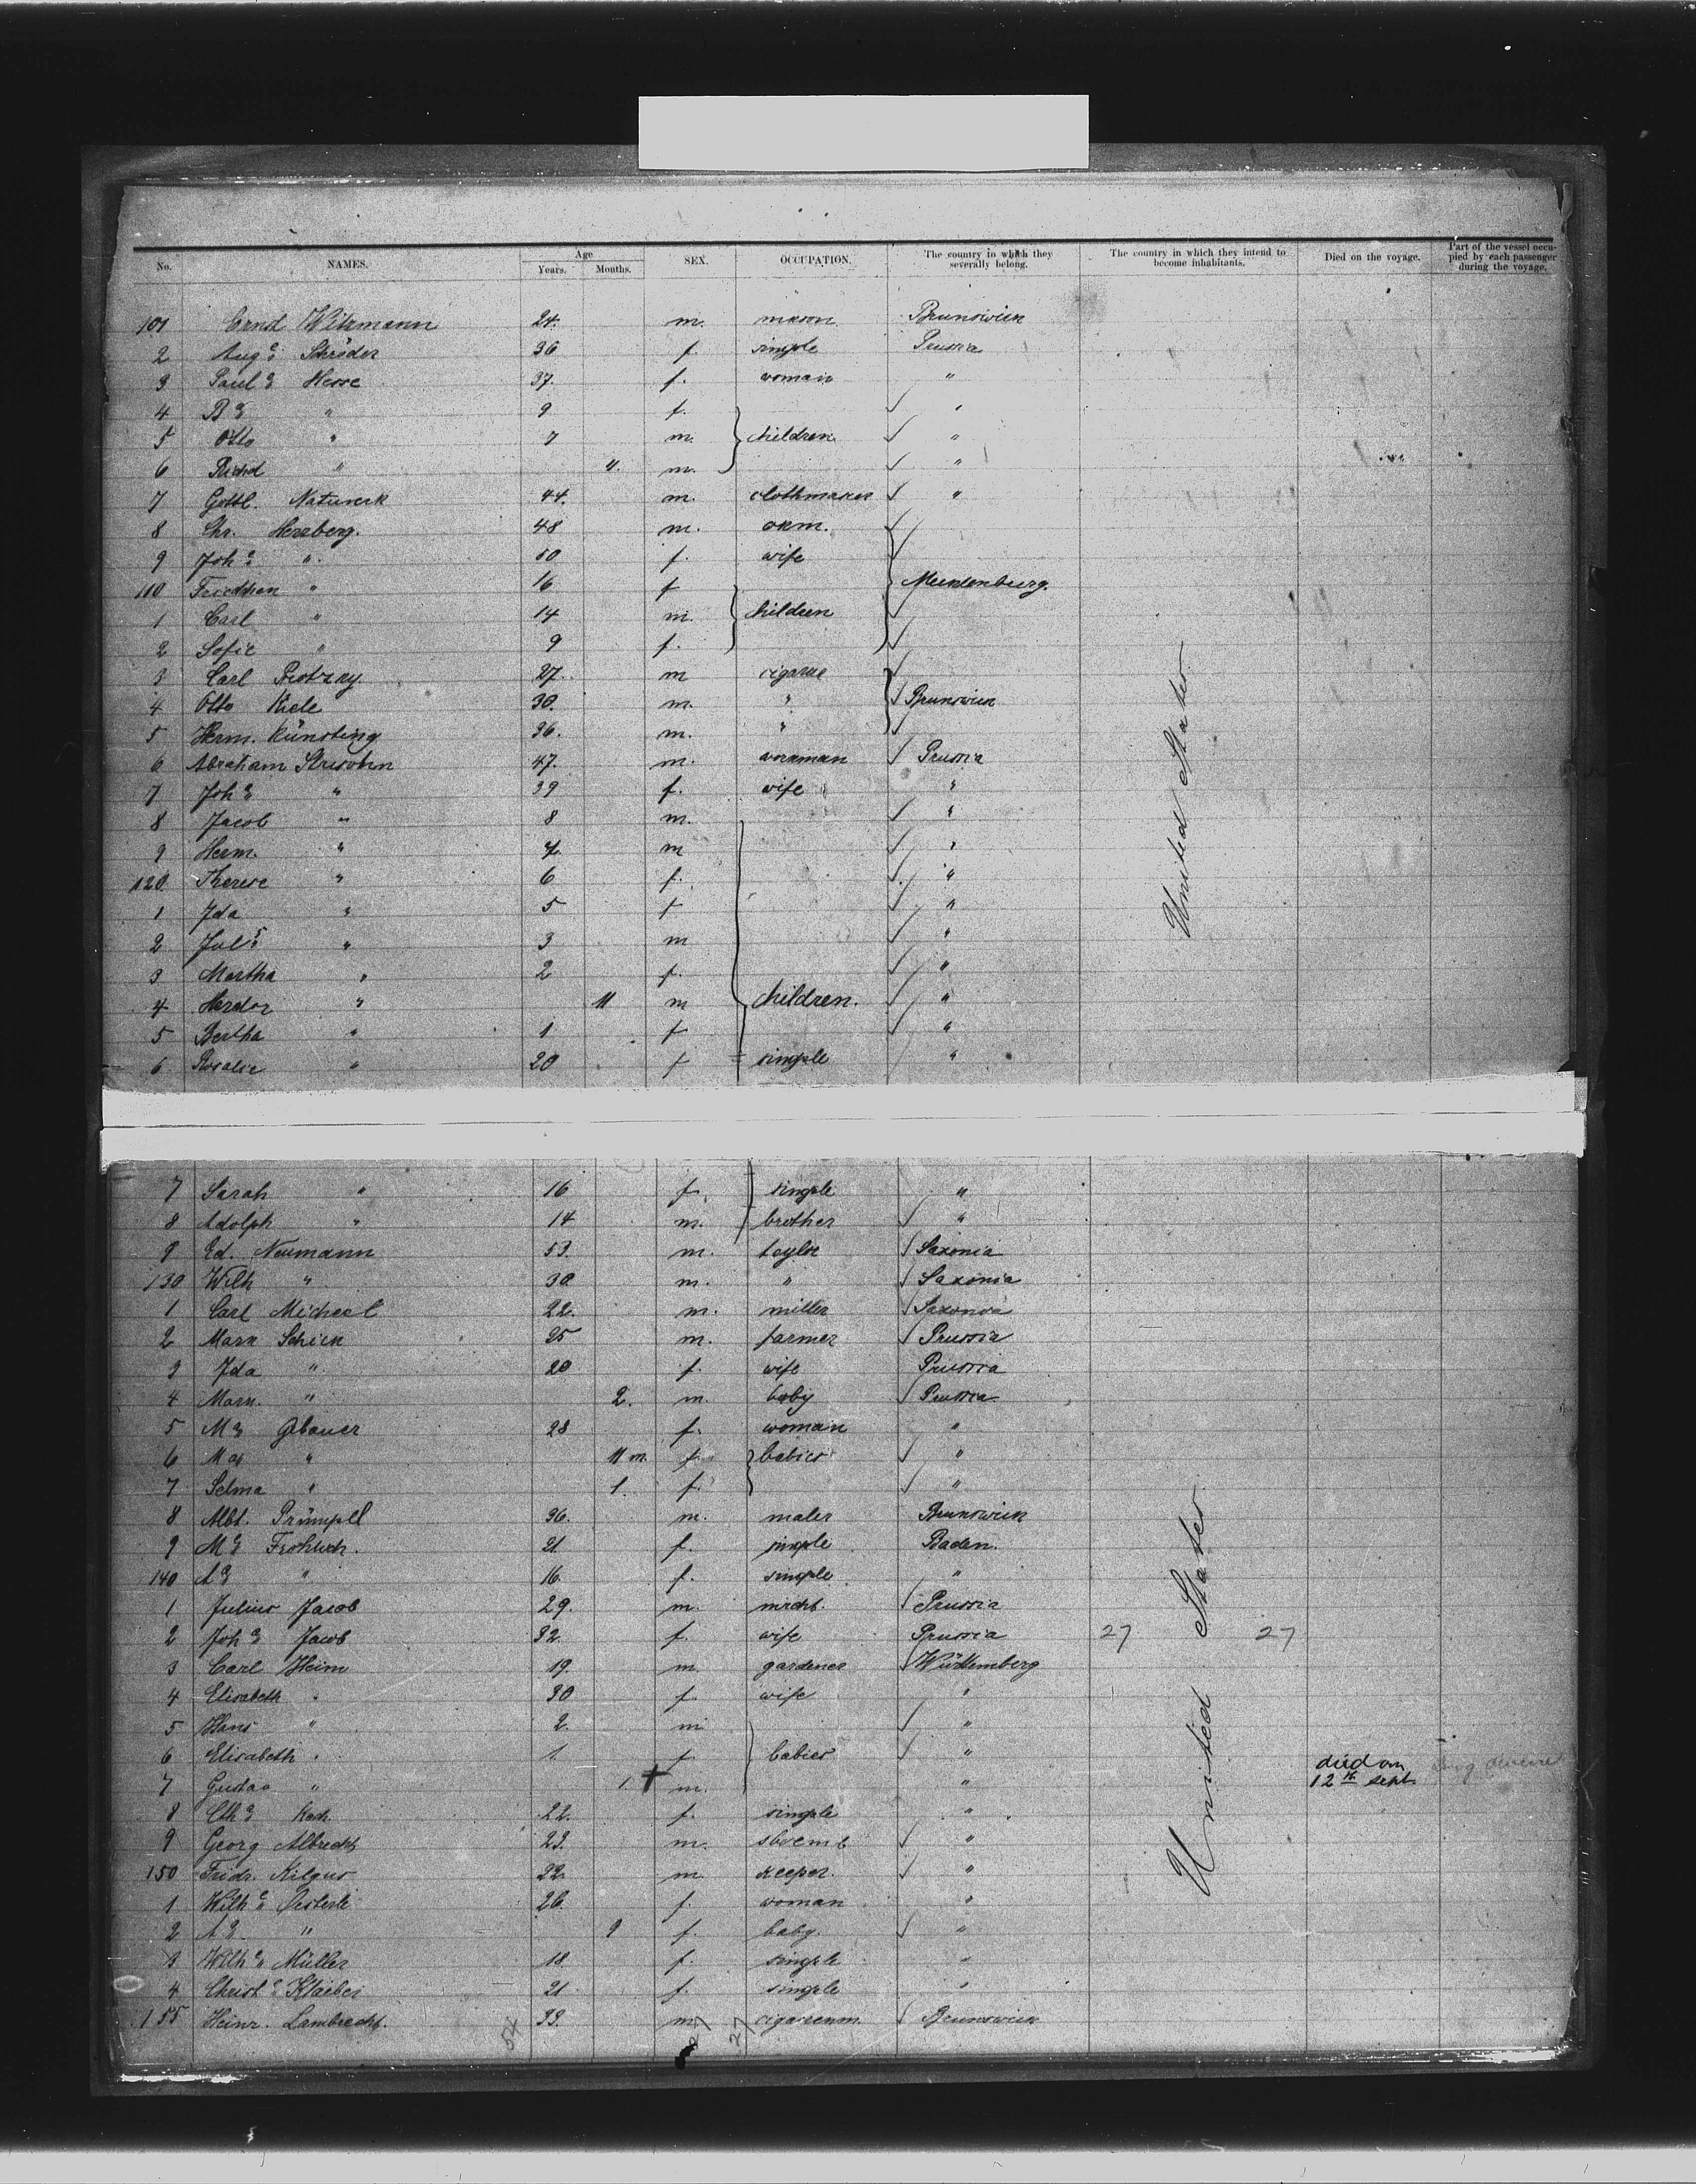 No. NAMES. Age Years. Months. SEX. OCCUPATION. The country to which they severally belong. The country in which they intend to become inhabitants. Died on the voyage. Part of the vessel occupied by each passenger during the voyage.
101 Ernst Witzmann 24. m. mason Brunswick
2 Aug.e Schröder 36 f. single Prussia
3 Paul.e Hesse 37. f. woman "
4 B.e " 9 f. "
5 Otto " 7 m. children "
6 Richd " 11. m. "
7 Gottl. Naturerk 44. m. clothmaker "
8 Chr. Herzberg. 48 m. wkm.
9 Joh.e " 50 f. wife
110 Friedchen " 16 f Mecklenburg.
1 Carl " 14 m. children
2 Sofie " 9 f.
3 Carl 27. m cigarm
4 Otto Kiele 30. m. " Brunswick
5 Herm. Künsting 36. m. "
6 Abraham 47. m. workman Prussia
7 Joh.e " 39 f. wife "
8 Jacob " 8 m. "
9 Herm. " 7. m "
120. Therese " 6 f. "
1 Ida " 5 f "
2 Jul.s " 3 m "
3 Martha " 2 f. "
4 " 11 m children. "
5 Bertha " 1 f "
6 Rosalie " 20 f single "
7 Sarah " 16 f. single "
8 Adolph " 14 m. brother "
9 Ed. Neumann 53. m. taylor Saxonia
130 Wilh " 30. m. " Saxonia
1 Carl Micheel 22. m. miller Saxonia
2 Marx Schick 25 m. farmer Prussia
3 Ida " 20 f. wife Prussia
4 Marx. " 2. m. baby Prussia
5 M.e Gebauer 28 f. woman "
6 Max " 11 m. f. babies "
7 Selma " 1. f. "
8 Albt. Prümpell 36. m. maler Brunswick
9 M.e Frohlich. 21 f. single Baden.
140 A.e " 16. f. single "
1 Julius Jacob 29. m. mrcht. Prussia
2 Joh.e Jacob 32. f. wife Prussia 27 27
3 Carl Heim 19. m. gardener Württemberg
4 Elisabeth " 30 f. wife "
5 Hans " 2. m "
6 Elisabeth " 1. f babies "
7 Gustav " 1. + m. " died on 12th sept.
8 Cth.e Koch 22. f. single "
9 Georg Albrecht 23. m. shoemk "
150 Fridr. Kilgus 22. m keeper. "
1 Wilh.e Oesterle 26. f. woman "
2 A.e " 9 f. baby. "
3 Wilh.e Müller 18. f. single "
4 Christ.e Klaiber 21 f. single "
155 Heinr. Lambrecht. 33. m. cigarrenm. Brunswick
United States
United States
54 27 27